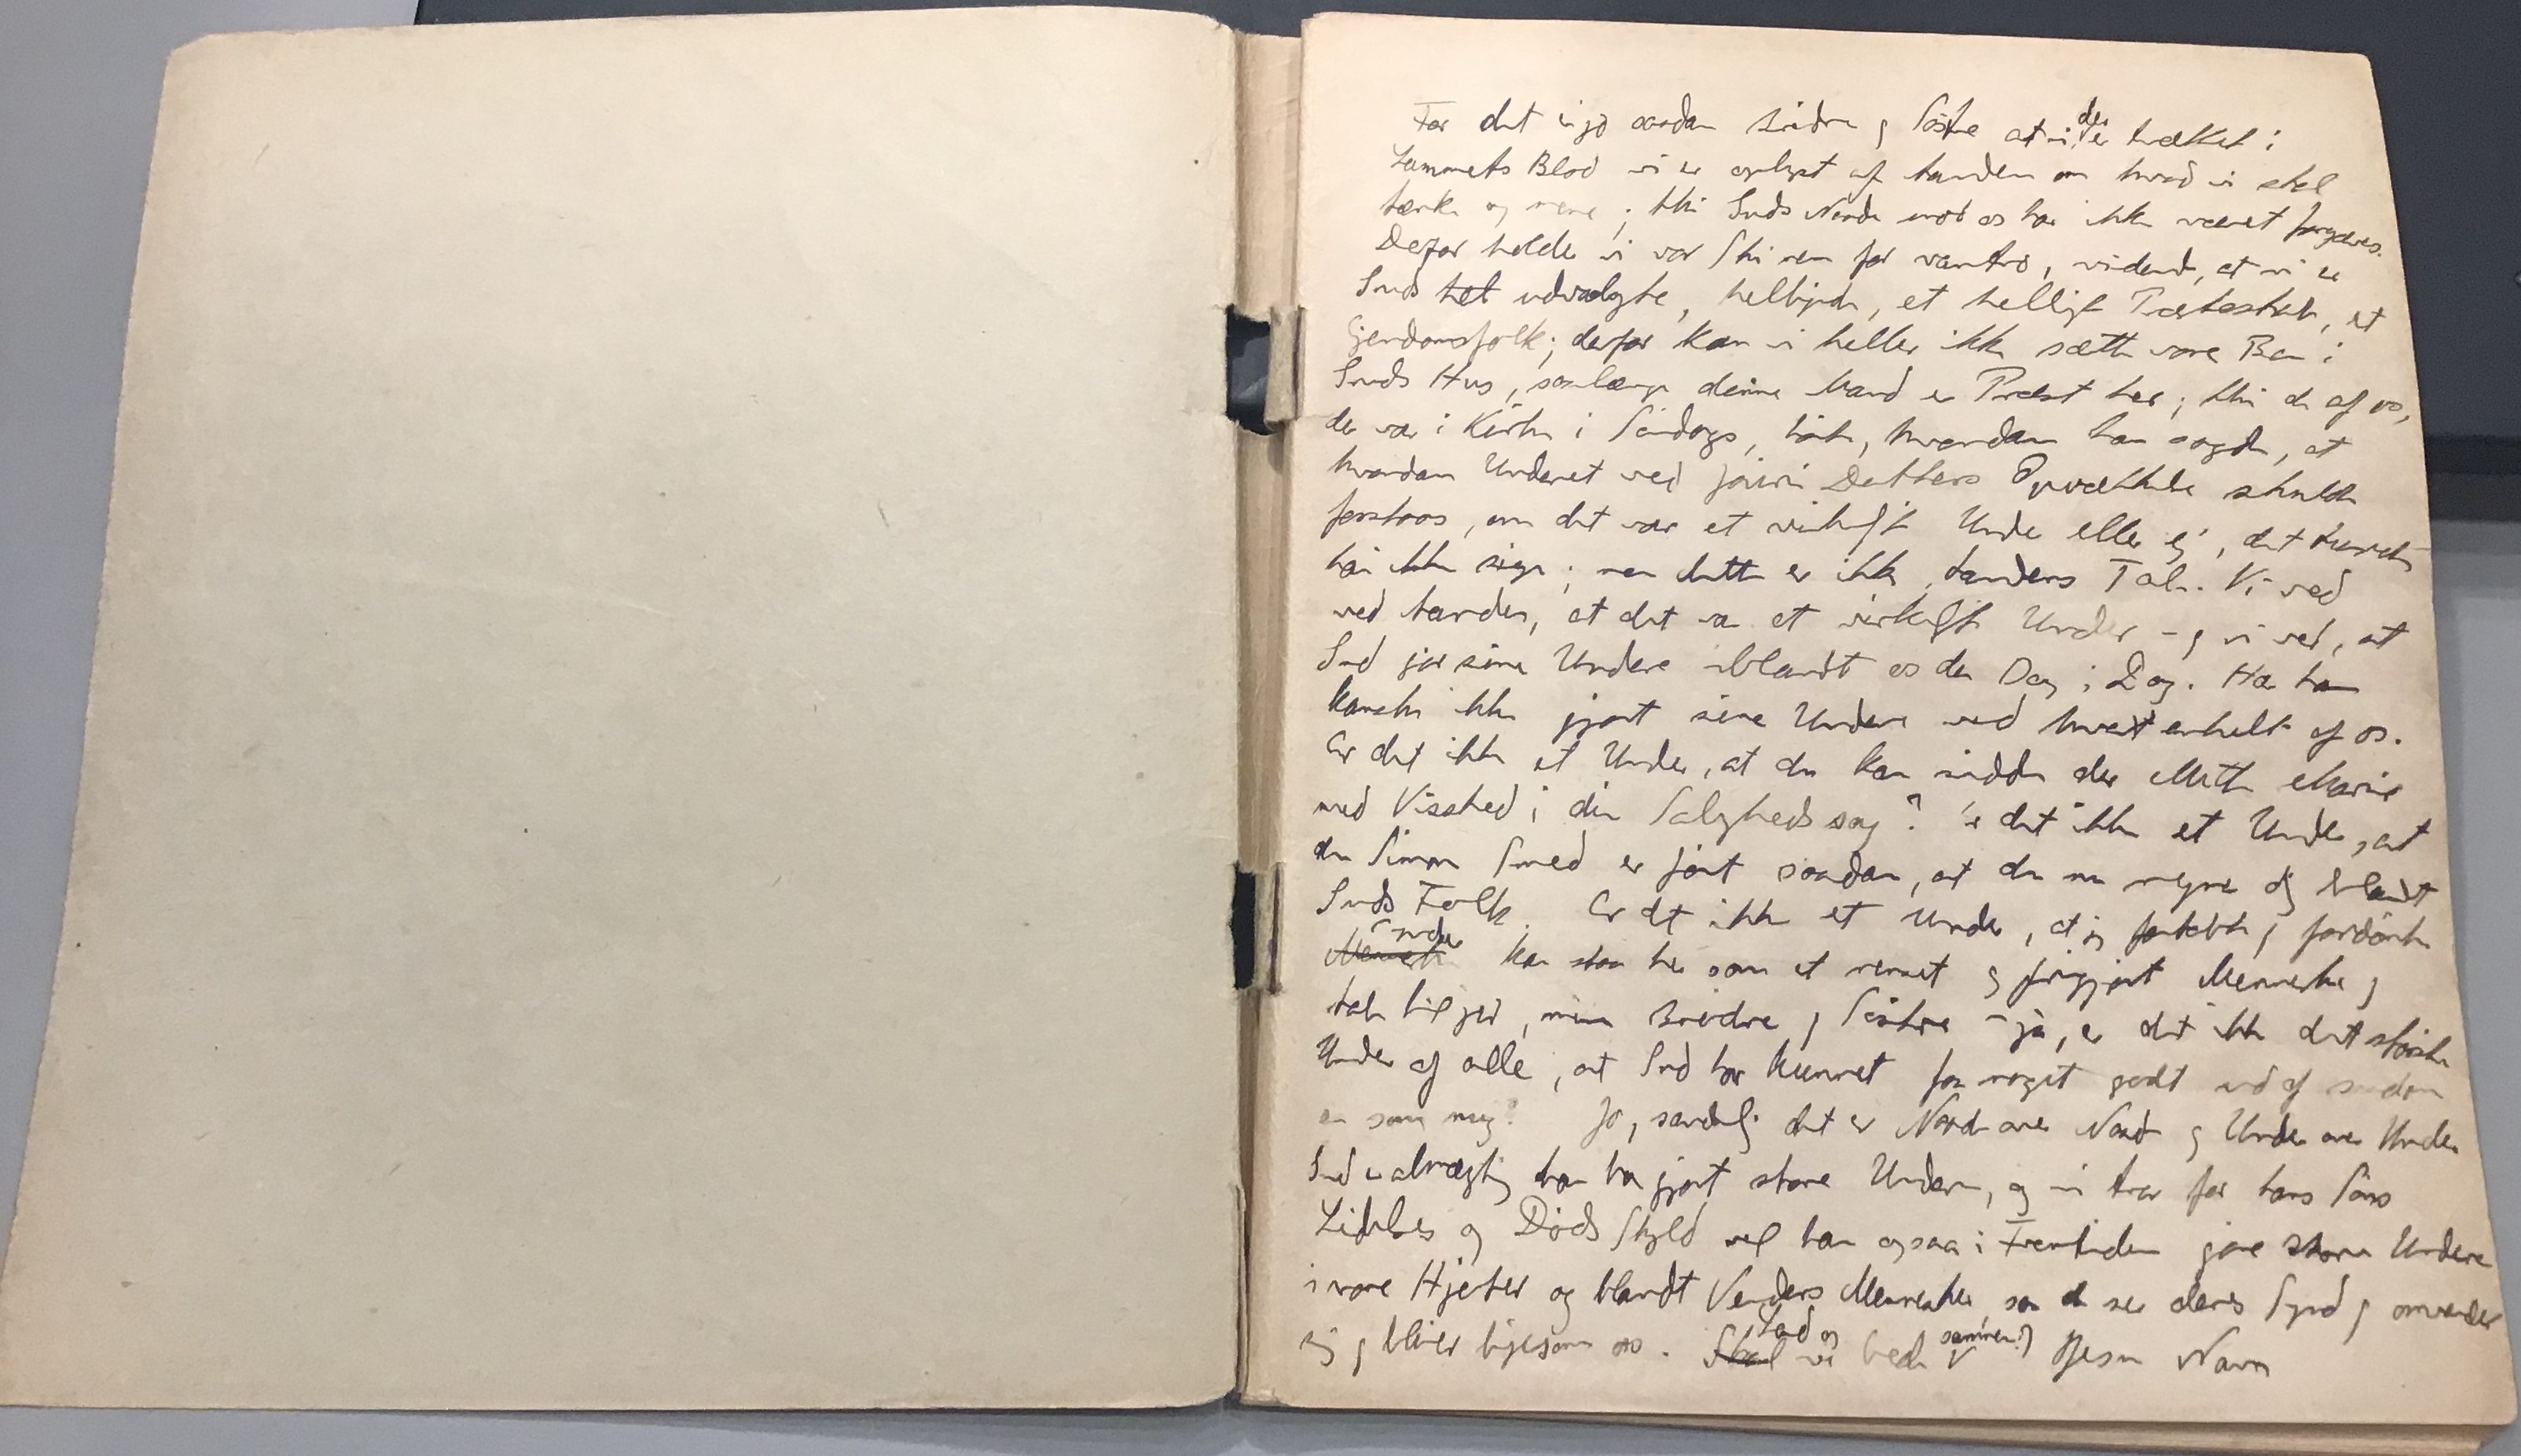 For det er jo saadan Brødre og Søstre at vi der er tvættet i
Lammets Blod vi er oplyst af Aanden om hvad vi skal
tænke og mene; thi Guds Naade mod os har ikke været forgæves.
Derfor holder vi vor Sti ren for vantro, vidende, at vi er
Guds udvalgte, hellige, et helligt Præsteskab, et
Ejendomsfolk; derfor kan vi heller ikke sætte vore Ben i
Guds Hus, saalænge denne Mand er Præst her; thi de af os,
der var i Kirke i Søndags, hørte, hvordan han sagde, at
hvordan Underet ved Jairi Datters Opvækkelse skulde
forstaas, om det var et virkeligt Under eller ej, det turde
han ikke sige; men dette er ikke Aandens Tale. Vi ved
ved Aanden, at det var et virkeligt Under - og vi ved, at
Gud gør sine Undere iblandt os den Dag i Dag. Har han
kanske ikke gjort sine Undere ved hvert enkelt af os.
Er det ikke et Under, at du kan sidde der Mette Marie
med Vished i din Salighedssag? Er det ikke et Under, at
du Simon Smed er ført saadan, at du nu regne dig blandt
Guds Folk. Er det ikke et Under, at jeg fortabte og fordømte
Synder kan staa her som et renset og frigjort Menneske og
tale til jer, mine Brødre og Søstre - ja, er det ikke det største
Under af alle, at Gud har kunnet faa noget godt ud af saadan
en som mig? Jo, sandelig det er Naade over Naade og Under over Under
Gud er almægtig han har gjort store Undere, og vi tror for hans Søns
Lidelses og Døds Skyld vil han ogsaa i Fremtiden gøre store Undere
i vore Hjerter og blandt Verdens Mennesker saa de ser deres Synd og omvender
sig og bliver ligesom os. Lad os bede sammen i Jesu Navn